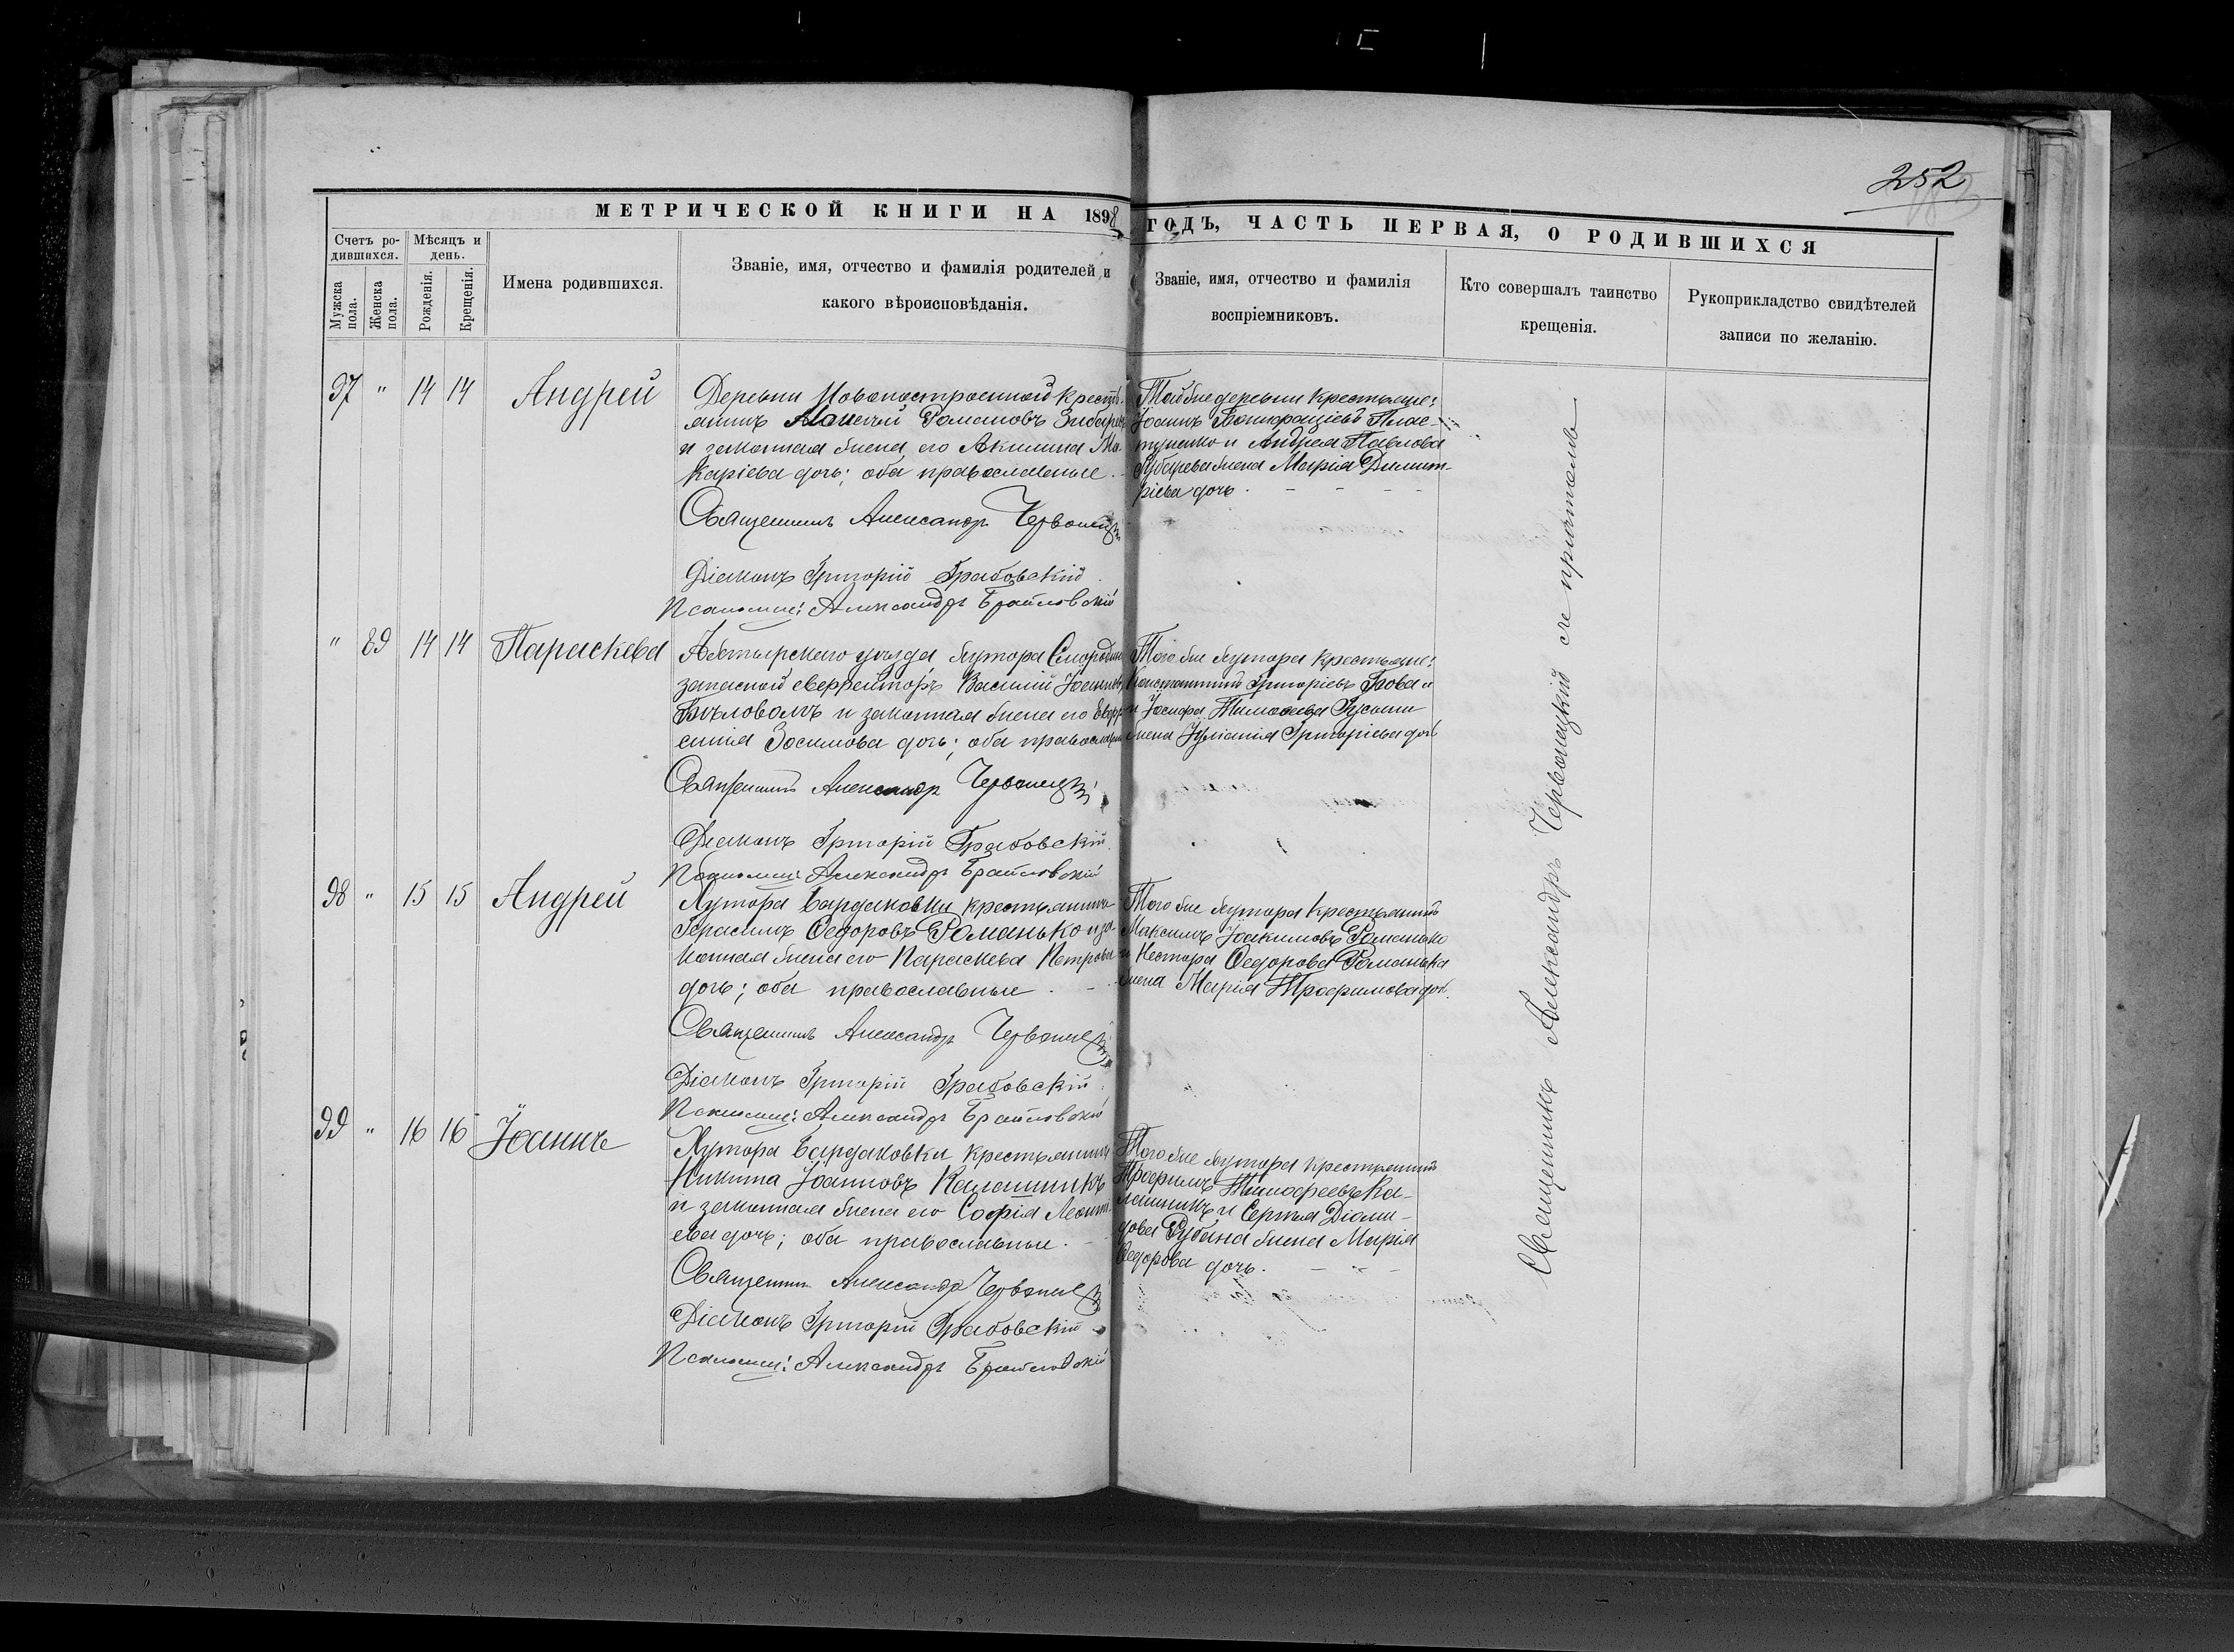 252
МЕТРИЧЕСКОЙ КНИГИ НА 1898 ГОДЪ, ЧАСТЬ ПЕРВАЯ, О РОДИВШИХСЯ
Счетъ ро-
дившихся.
Мѣсяцъ и
день.
Мужска
пола.
Женска
пола.
Рожденія.
Крещенія.
Имена родившихся.
Званіе, имя, отчество и фамилія родителей и
какого вѣроисповѣданія.
Званіе, имя, отчество и фамилія
воспріемниковъ.
Кто совершалъ таинство
крещенія.
Рукоприкладство свидѣтелей
записи по желанію.
97 " 14 14 Андрей
Деревни Новопостроенной крест.
янинъ Романовъ
и законная жена его Акилина Ма-
каріева дочь; оба православные
Священникъ Александръ Червонецкій
Діаконъ Григорій Грабовскій
Псаломщ: Александръ Браиловскій
Той же деревни крестьяне:
Іоаннъ
и Андрея Павлова
жена Марія Димит-
ріева дочь.
" 89 14 14 Параскева
Ахтырскаго уѣзда хутора
запасной еврейторъ Василій Іоанновъ
Бѣловолъ и законная жена его Евфр
синія Зосимова дочь; оба православн
Священникъ Александръ Червонецкій
Діаконъ Григорій Грабовскій
Псаломщ: Александръ Браиловскій
Того же хутора крестьяне:
Константинъ Григорьевъ
и Іосифа Тимофеева
жена Іуліанія Григоріева дочь
98 " 15 15 Андрей
Хутора Бардаковки крестьянинъ
Герасимъ Ѳедоровъ Романько и за-
конная жена его Параскева Петрова
дочь; оба православные
Священникъ Александръ Червонецкій
Діаконъ Григорій Грабовскій
Псаломщ: Александръ Браиловскій
Того же хутора крестьянинъ
Максимъ Іоакимовъ Романько
и Нестора Ѳедорова Романька
жена Марія Трофимова доч.
99 " 16 16 Іоаннъ
Хутора Бардаковки крестьянинъ
Никита Іоанновъ Калашникъ
и законная жена его Софія Леонті
ева дочь; оба православные.
Священникъ Александръ Червонецкій
Діаконъ Григорій Грабовскій
Псаломщ: Александръ Браиловскій
Того же хутора крестьянинъ
Трофимъ Тимофеевъ Ка-
лашникъ и Сергія Діоми-
дова Рубана жена Марія
Ѳедорова дочь.
Священникъ Александръ Червонецкій